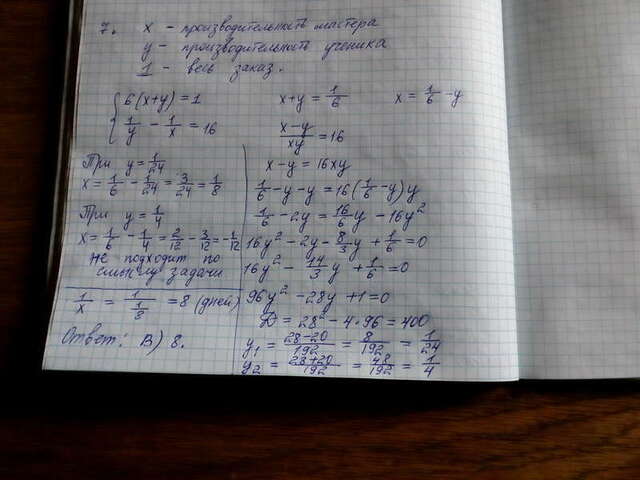 7. x – производительность мастера
y – производительность ученика
1 – весь заказ.
{ 6(x+y) = 1
1/y - 1/x = 16
x+y = 1/6
x = 1/6 - y
(x-y)/(xy) = 16
x-y = 16xy
1/6 - y - y = 16(1/6 - y)y
1/6 - 2y = 16/6 y - 16y²
16y² - 2y - 8/3 y + 1/6 = 0
16y² - 14/3 y + 1/6 = 0
96y² - 28y + 1 = 0
D = 28² - 4·96 = 400
y₁ = (28-20)/192 = 8/192 = 1/24
y₂ = (28+20)/192 = 48/192 = 1/4
При y = 1/24
x = 1/6 - 1/24 = 3/24 = 1/8
При y = 1/4
x = 1/6 - 1/4 = 2/12 - 3/12 = -1/12
не подходит по
смыслу задачи
1/x = 1/(1/8) = 8 (дней)
Ответ: В) 8.